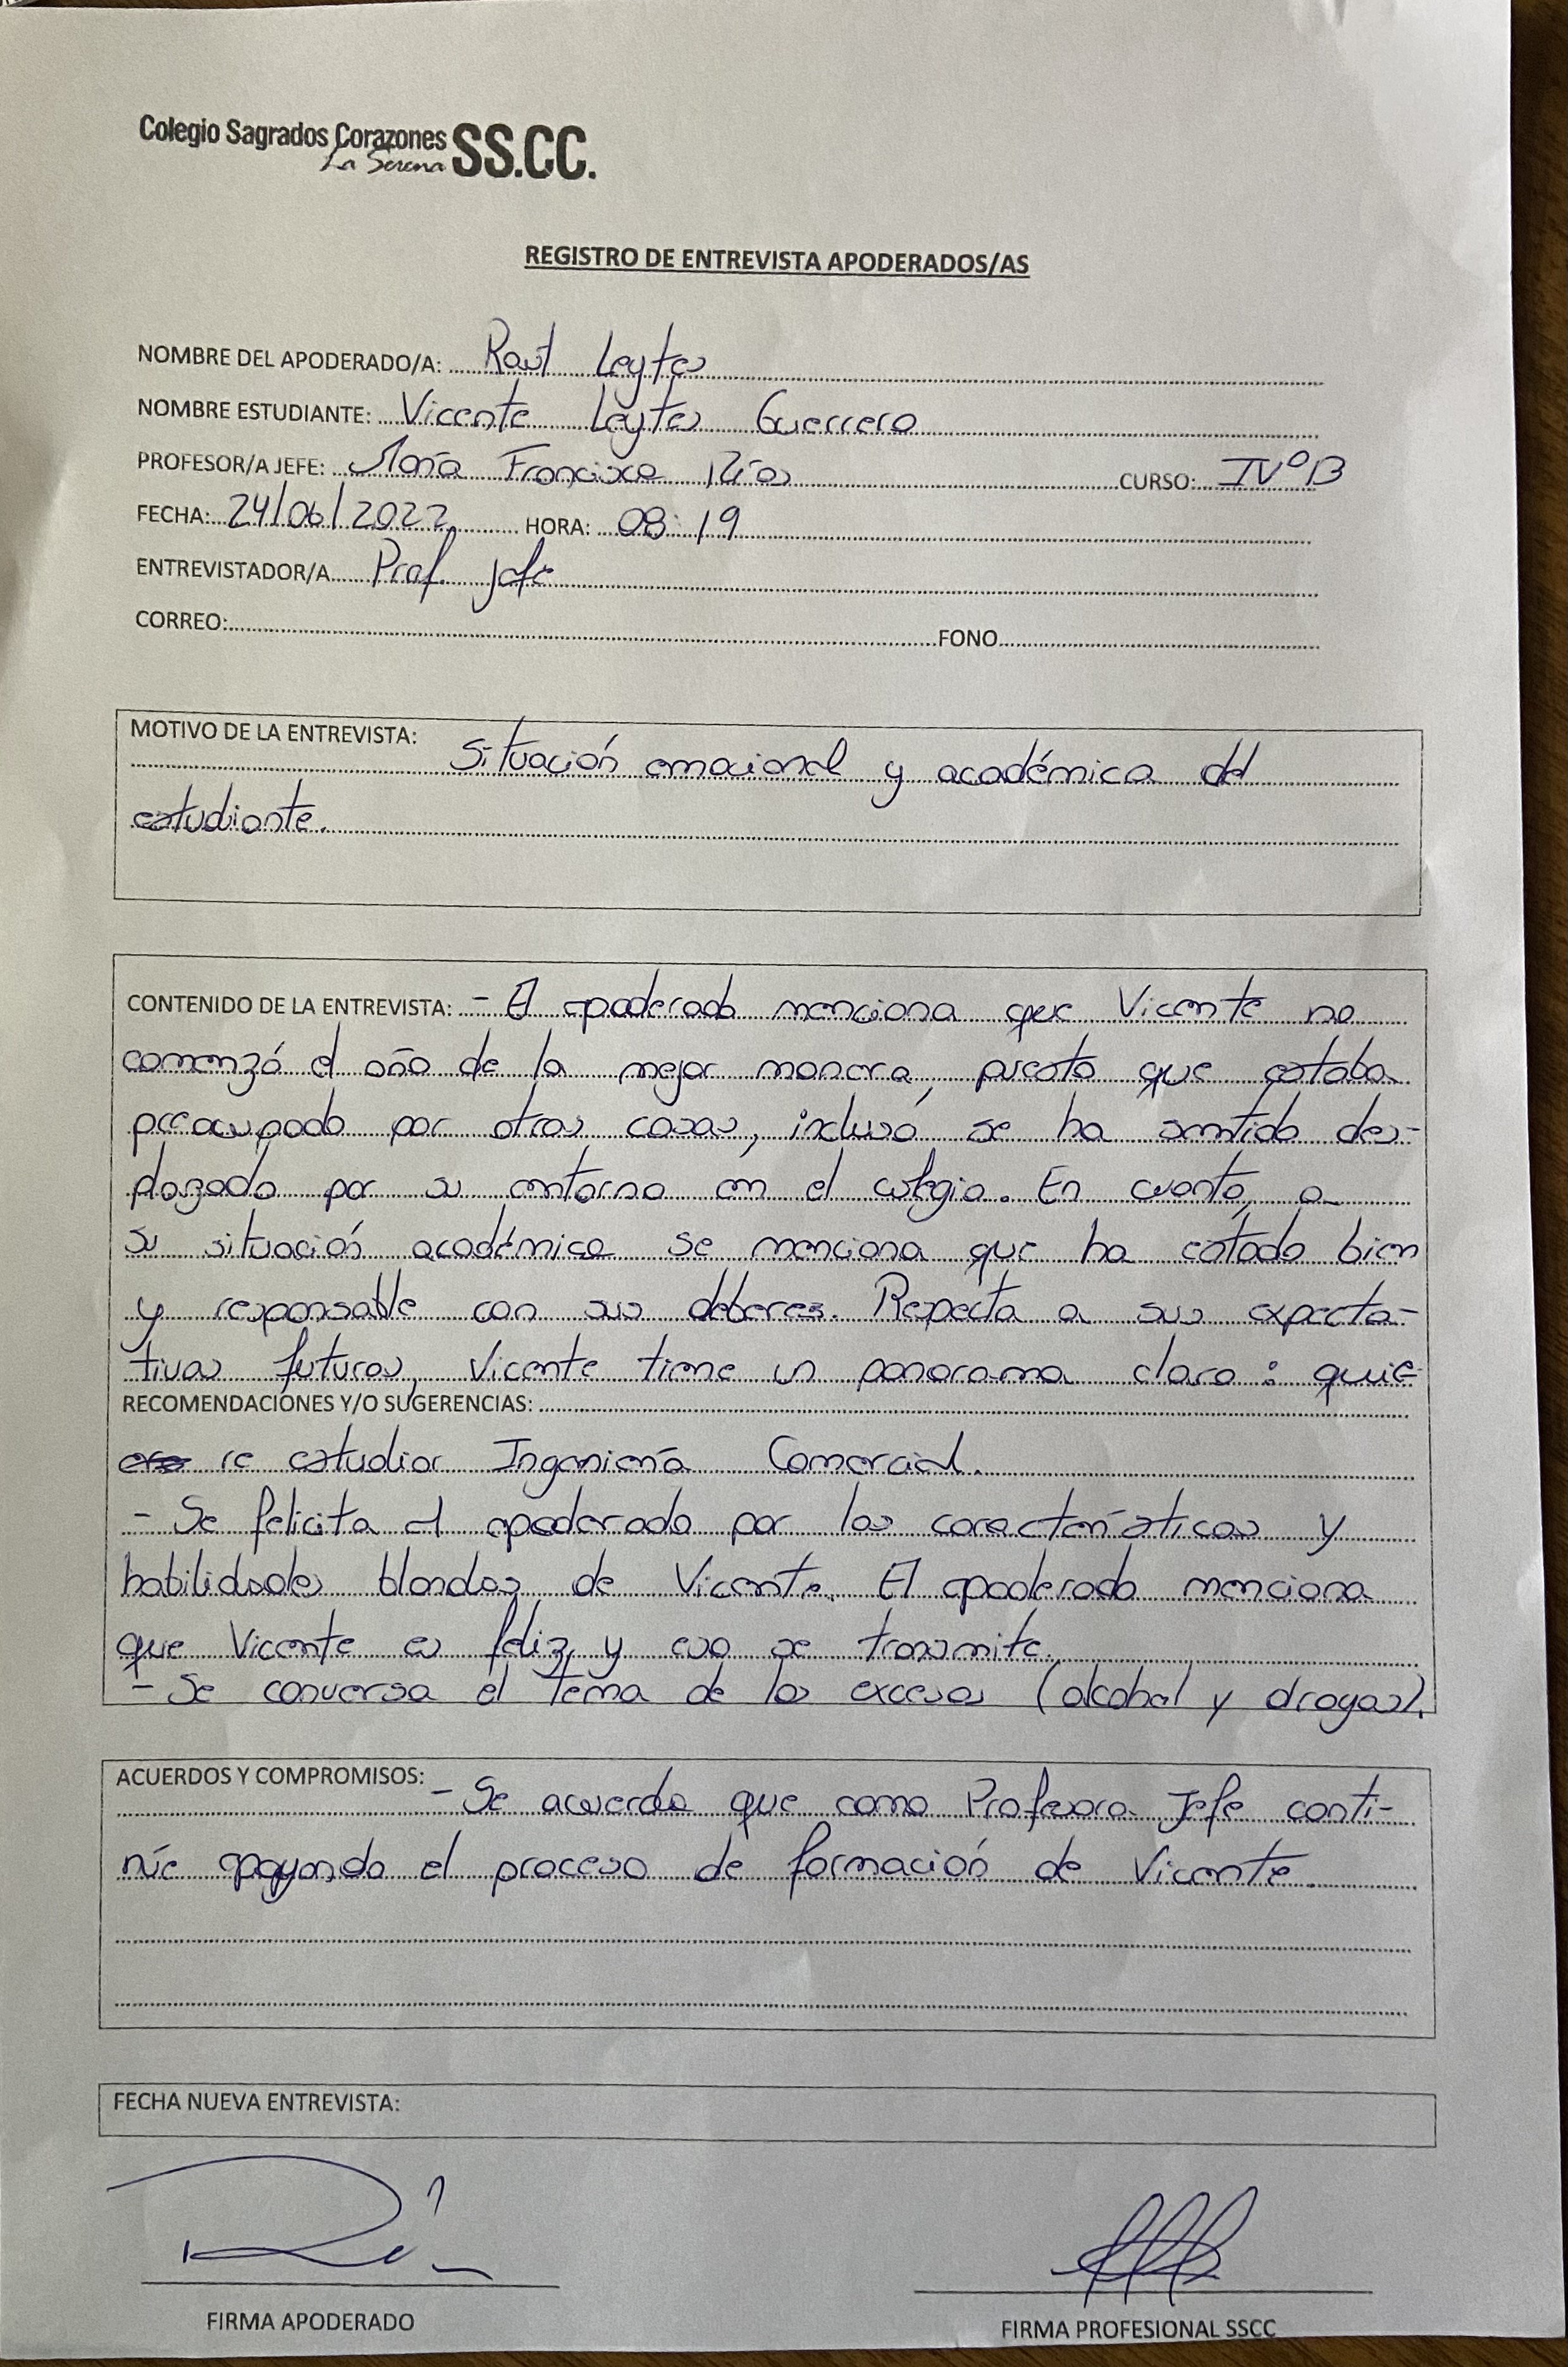 Colegio Sagrados Corazones SS.CC.
La Serena
REGISTRO DE ENTREVISTA APODERADOS/AS
NOMBRE DEL APODERADO/A: Raúl Leytes
NOMBRE ESTUDIANTE: Vicente Leytes Guerrero
PROFESOR/A JEFE: María Francisca Ríos CURSO: IVºB
FECHA: 24/06/2022 HORA: 08:19
ENTREVISTADOR/A Prof. jefe
CORREO: FONO
MOTIVO DE LA ENTREVISTA: Situación emocional y académica del
estudiante.
CONTENIDO DE LA ENTREVISTA: - El apoderado menciona que Vicente no
comenzó el año de la mejor manera, puesto que estaba
preocupado por otras cosas, inclusó se ha sentido des-
plazado por su entorno en el colegio. En cuanto, a
su situación académica se menciona que ha estado bien
y responsable con sus deberes. Respecta a sus expecta-
tivas futuras, Vicente tiene un panorama claro: quie-
RECOMENDACIONES Y/O SUGERENCIAS:
re estudiar Ingeniería Comercial.
- Se felicita al apoderado por las características y
habilidades blandas de Vicente. El apoderado menciona
que Vicente es feliz y eso se transmite.
- Se conversa el tema de los excesos (alcohol y drogas).
ACUERDOS Y COMPROMISOS: - Se acuerda que como Profesora Jefe conti-
núe apoyando el proceso de formación de Vicente.
FECHA NUEVA ENTREVISTA:
FIRMA APODERADO FIRMA PROFESIONAL SSCC